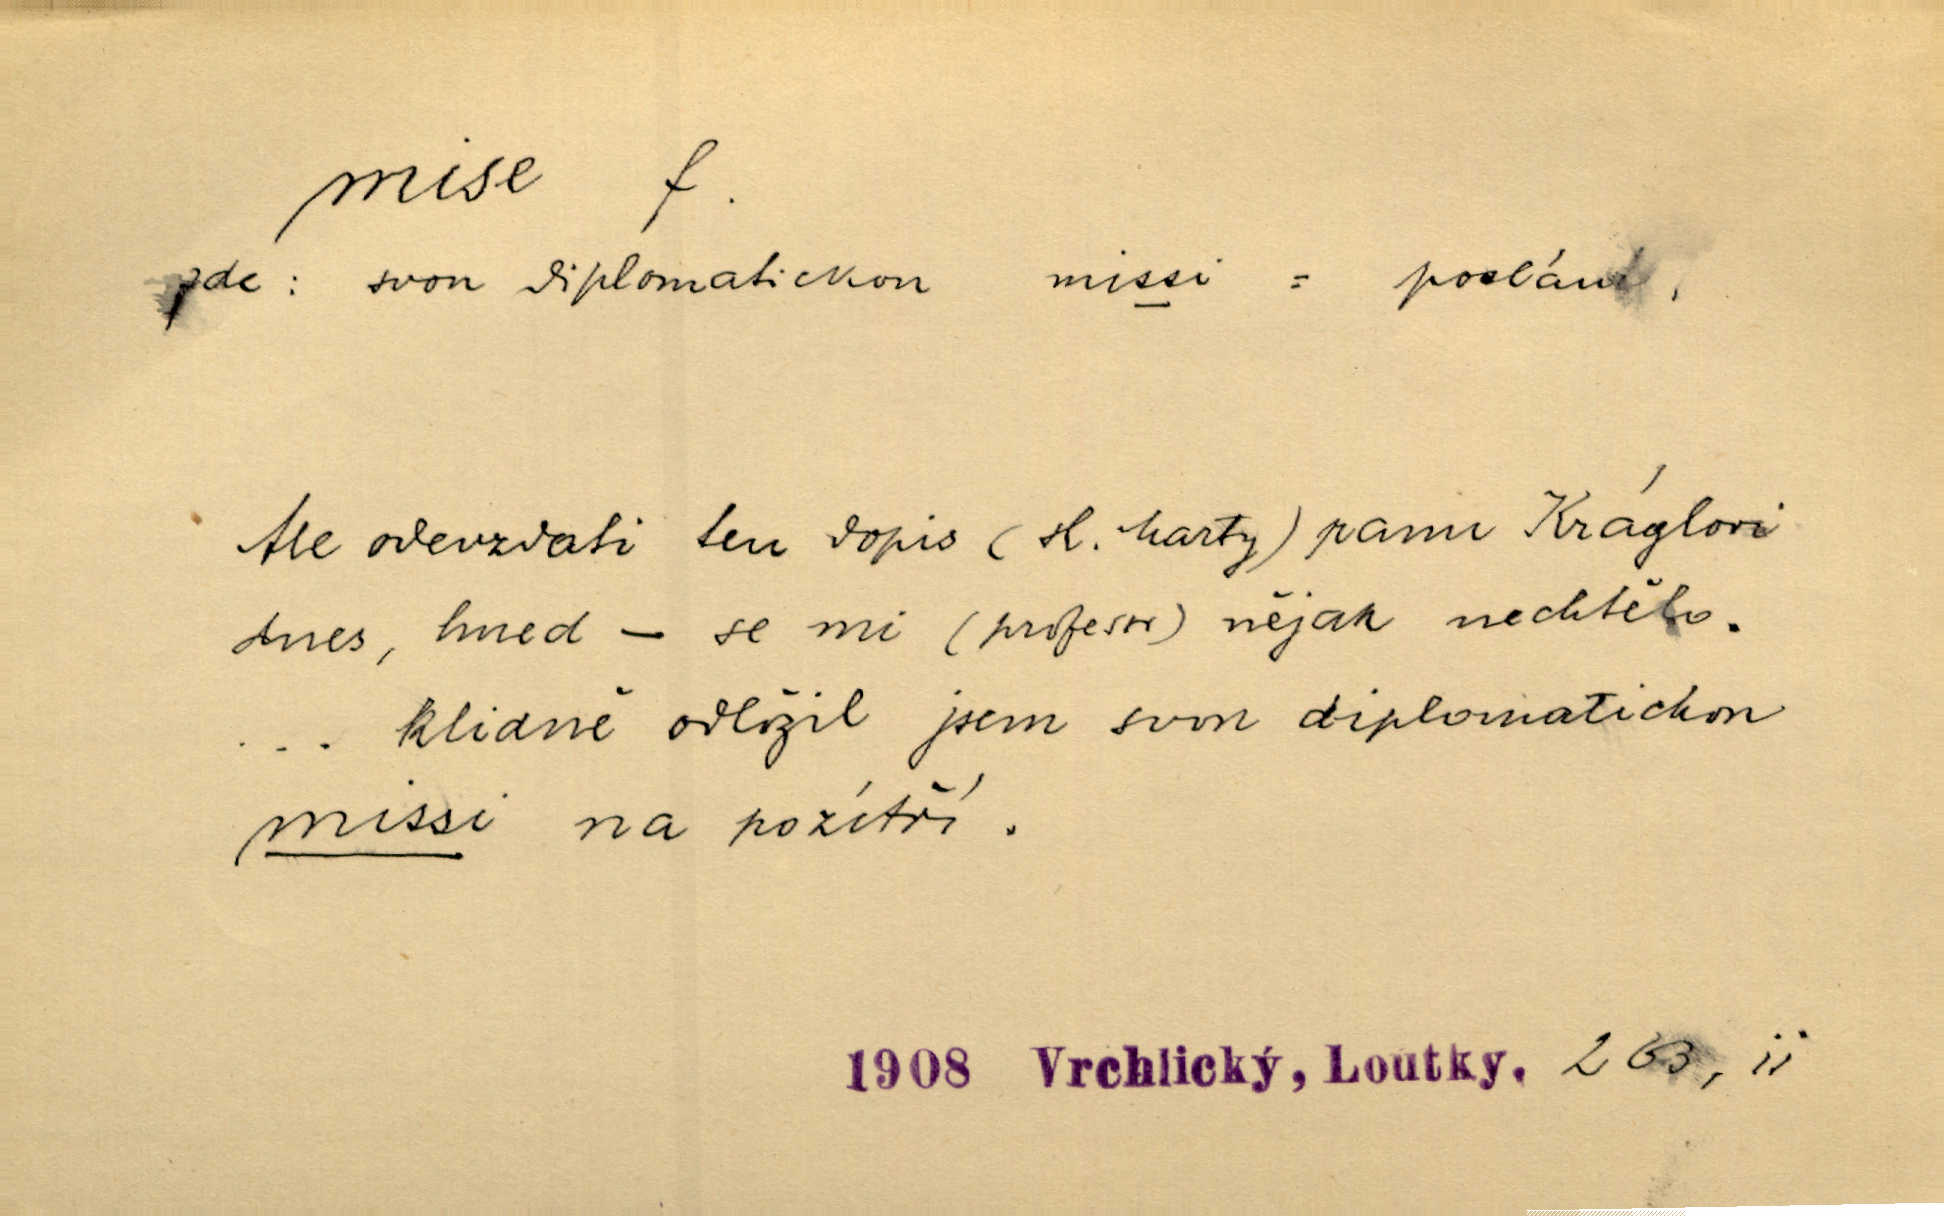 mise f.
zde: svou diplomatickou missi = poslání,
Ale odevzdati ten dopis (sl. Marty) panu Kráglovi
dnes, hned – se mi (profesor) nějak nechtělo.
... klidně odložil jsem svou diplomatickou
missi na pozítří.
1908 Vrchlický, Loutky. 263, ii